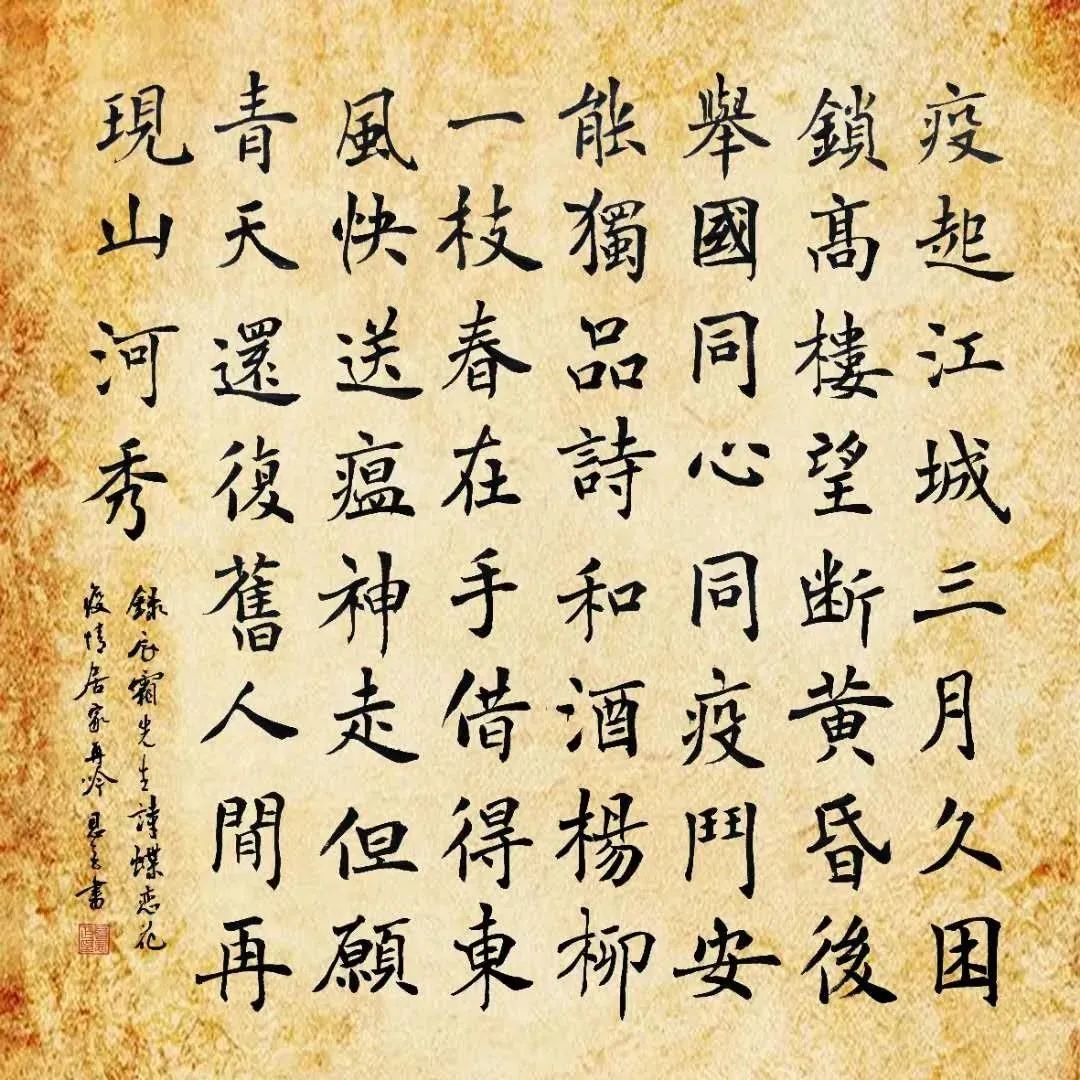 疫起江城三月久困
鎖高樓望断黄昏後
舉國同心同疫鬥安
能獨品詩和酒楊柳
一枝春在手借得東
風快送瘟神走但願
青天還復舊人間再
現山河秀
錄 霜先生詩蝶恋花
疫情居家再吟 書